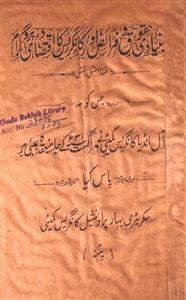 بنیادی حقوق و فرائض اور کانگریس کا اقتصادی پروگرام
جس کو
آل انڈیا کانگریس کمیٹی نے اگست ۳۱ء کے جلسہ منعقدہ بمبئی میں
پاس کیا
Khuda Bakhsh Library
Acc. No.
سکریٹری بہار پراونشیل کانگریس کمیٹی
(پٹنہ)